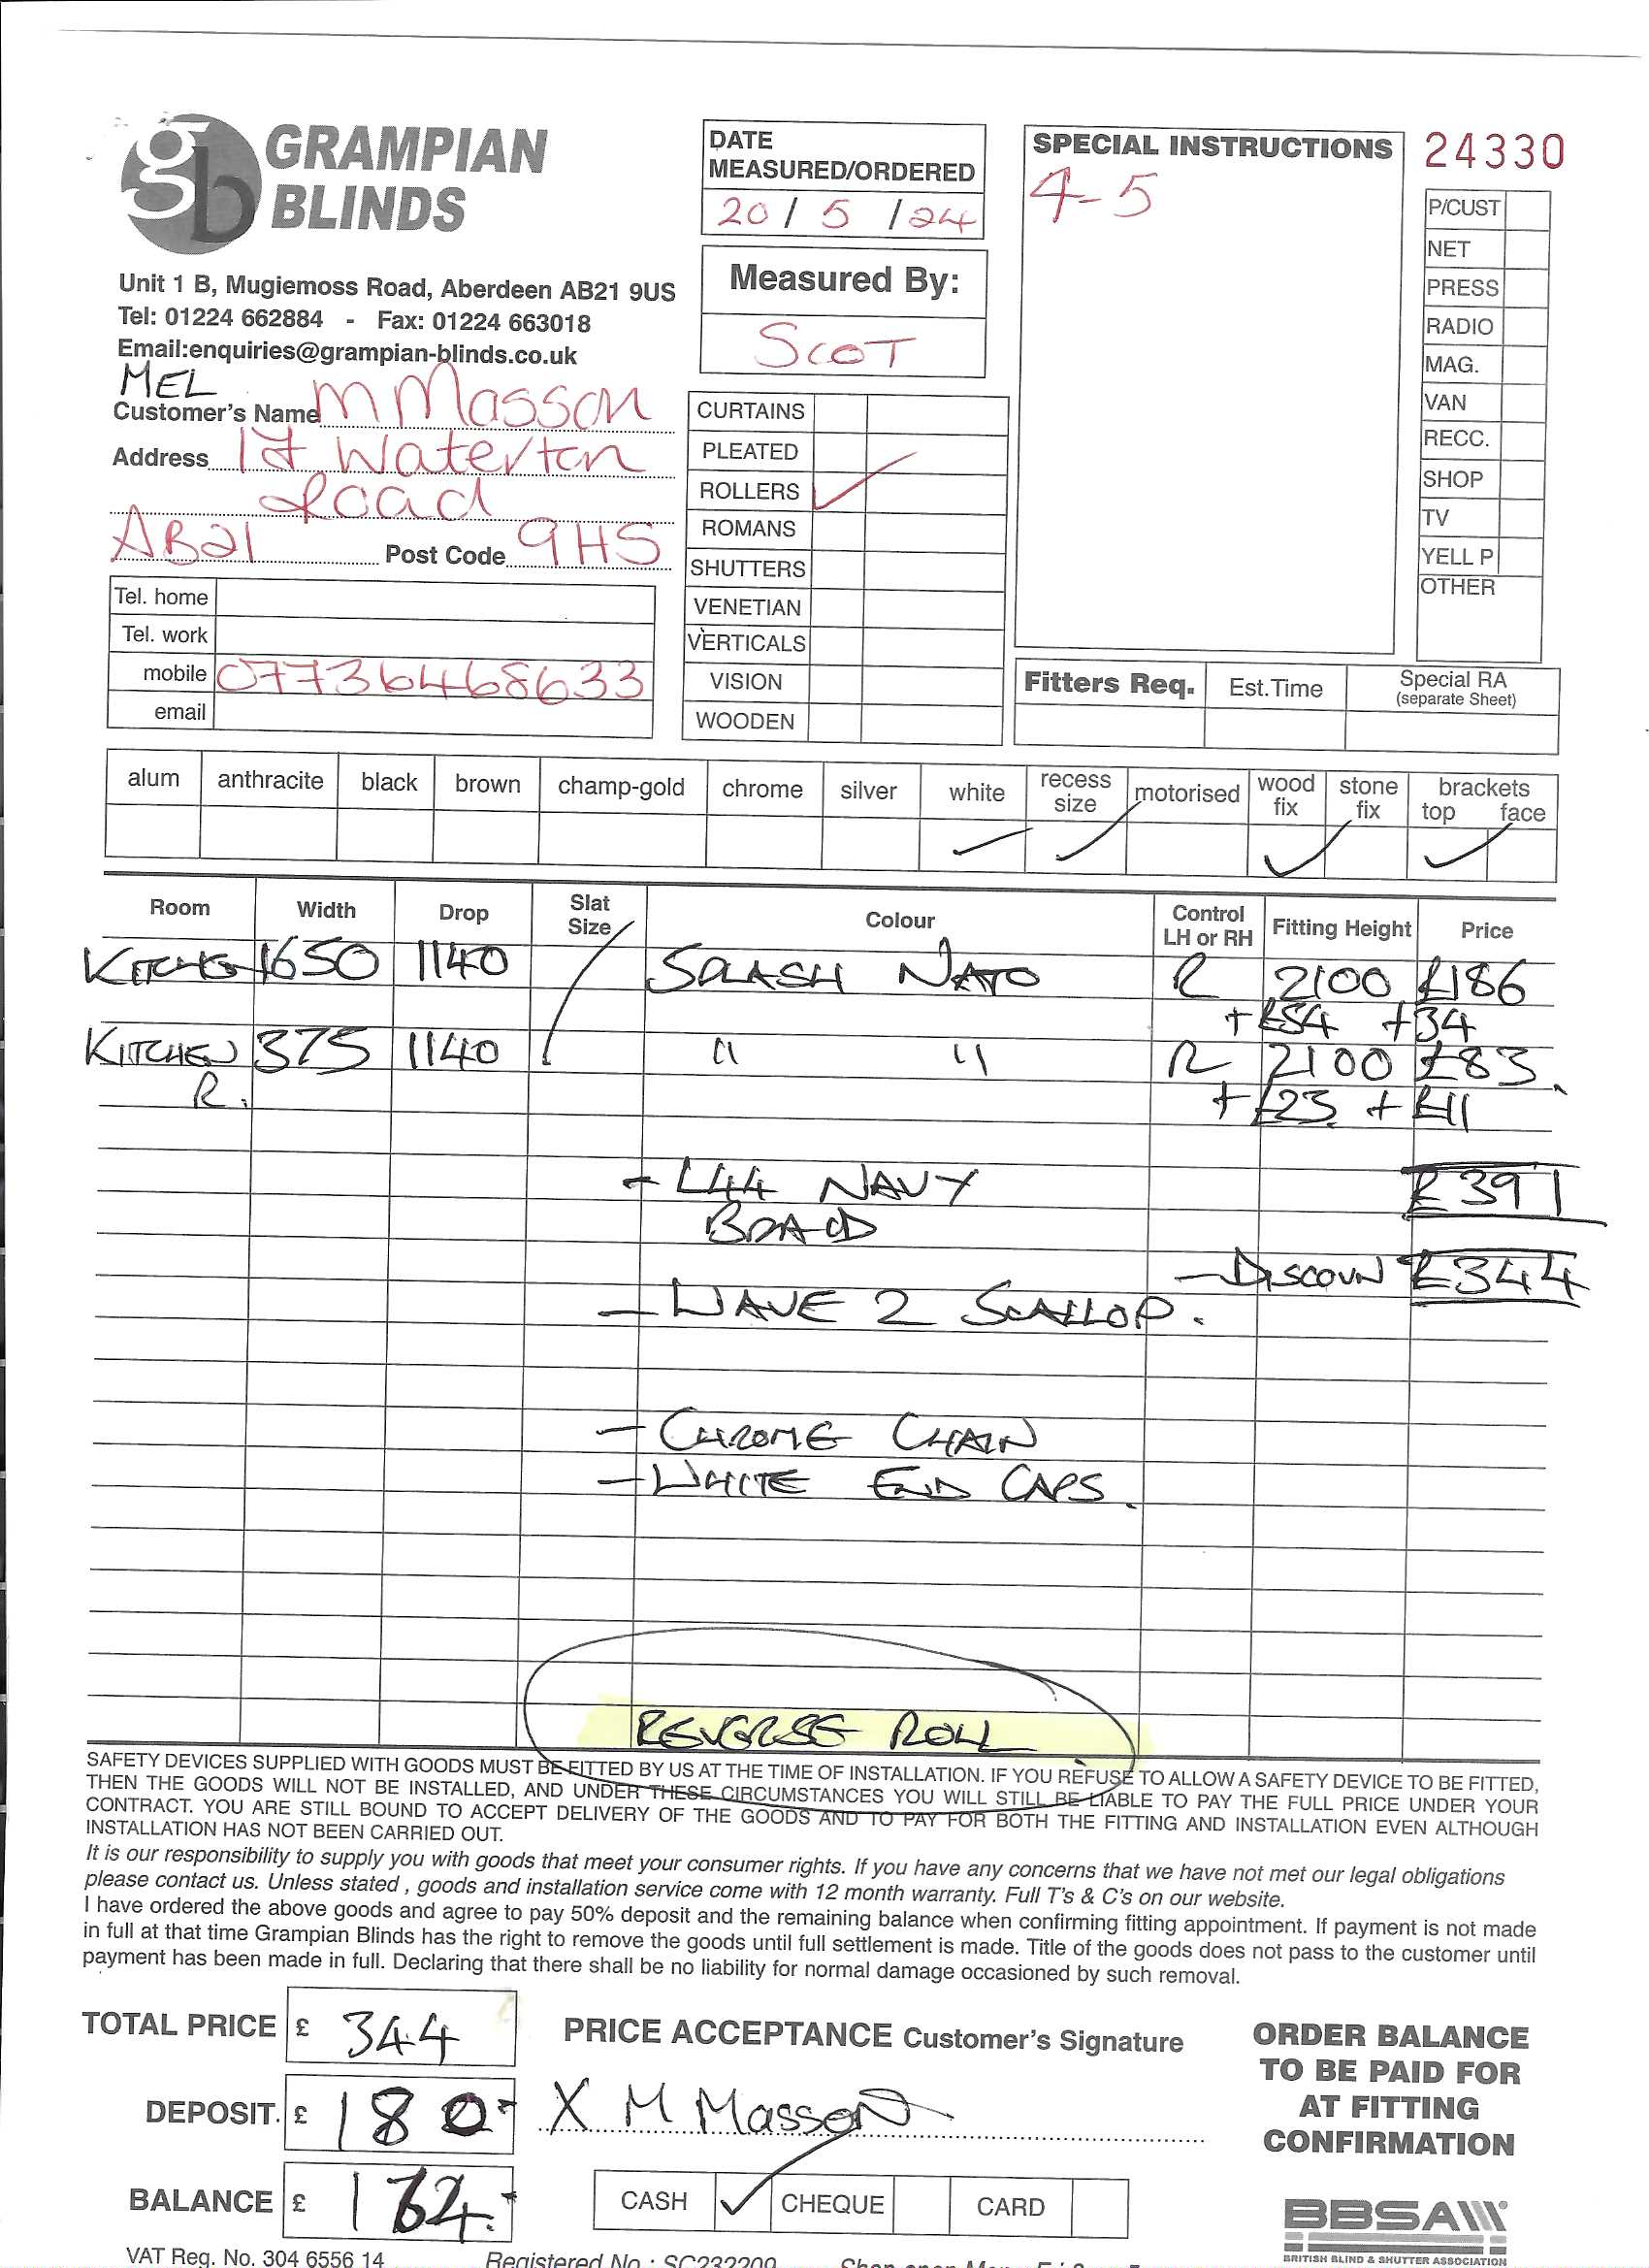 GRAMPIAN
BLINDS
Unit 1 B, Mugiemoss Road, Aberdeen AB21 9US
Tel: 01224 662884 - Fax: 01224 663018
Email:enquiries@grampian-blinds.co.uk
MEL
Customer's Name M Masson
Address 17 Waterton
Road
AB21 Post Code 9HS
Tel. home
Tel. work
mobile 07736468633
email
DATE
MEASURED/ORDERED
20 / 5 / 24
Measured By:
SCOT
CURTAINS
PLEATED
ROLLERS ✓
ROMANS
SHUTTERS
VENETIAN
VERTICALS
VISION
WOODEN
SPECIAL INSTRUCTIONS
4-5
24330
P/CUST
NET
PRESS
RADIO
MAG.
VAN
RECC.
SHOP
TV
YELL P
OTHER
Fitters Req. Est.Time Special RA
(separate Sheet)
alum anthracite black brown champ-gold chrome silver white recess size motorised wood fix stone fix brackets top face
✓ ✓ ✓ ✓
Room Width Drop Slat Size Colour Control LH or RH Fitting Height Price
KITCHEN 1650 1140 SPLASH NATO R 2100 £186
+£54 +34
KITCHEN 375 1140 " " R 2100 £83.
R. +£23. + £11
- L44 NAVY £391
BRAID
- DISCOUN £344
- WAVE 2 SCALLOP.
- CHROME CHAIN
- WHITE END CAPS.
REVERSE ROLL
SAFETY DEVICES SUPPLIED WITH GOODS MUST BE FITTED BY US AT THE TIME OF INSTALLATION. IF YOU REFUSE TO ALLOW A SAFETY DEVICE TO BE FITTED,
THEN THE GOODS WILL NOT BE INSTALLED, AND UNDER THESE CIRCUMSTANCES YOU WILL STILL BE LIABLE TO PAY THE FULL PRICE UNDER YOUR
CONTRACT. YOU ARE STILL BOUND TO ACCEPT DELIVERY OF THE GOODS AND TO PAY FOR BOTH THE FITTING AND INSTALLATION EVEN ALTHOUGH
INSTALLATION HAS NOT BEEN CARRIED OUT.
It is our responsibility to supply you with goods that meet your consumer rights. If you have any concerns that we have not met our legal obligations
please contact us. Unless stated , goods and installation service come with 12 month warranty. Full T's & C's on our website.
I have ordered the above goods and agree to pay 50% deposit and the remaining balance when confirming fitting appointment. If payment is not made
in full at that time Grampian Blinds has the right to remove the goods until full settlement is made. Title of the goods does not pass to the customer until
payment has been made in full. Declaring that there shall be no liability for normal damage occasioned by such removal.
TOTAL PRICE £ 344
DEPOSIT. £ 180-
BALANCE £ 164.-
PRICE ACCEPTANCE Customer's Signature
X M Masson
CASH ✓ CHEQUE CARD
ORDER BALANCE
TO BE PAID FOR
AT FITTING
CONFIRMATION
BBSA
BRITISH BLIND & SHUTTER ASSOCIATION
VAT Reg. No. 304 6556 14 Registered No.: SC232200